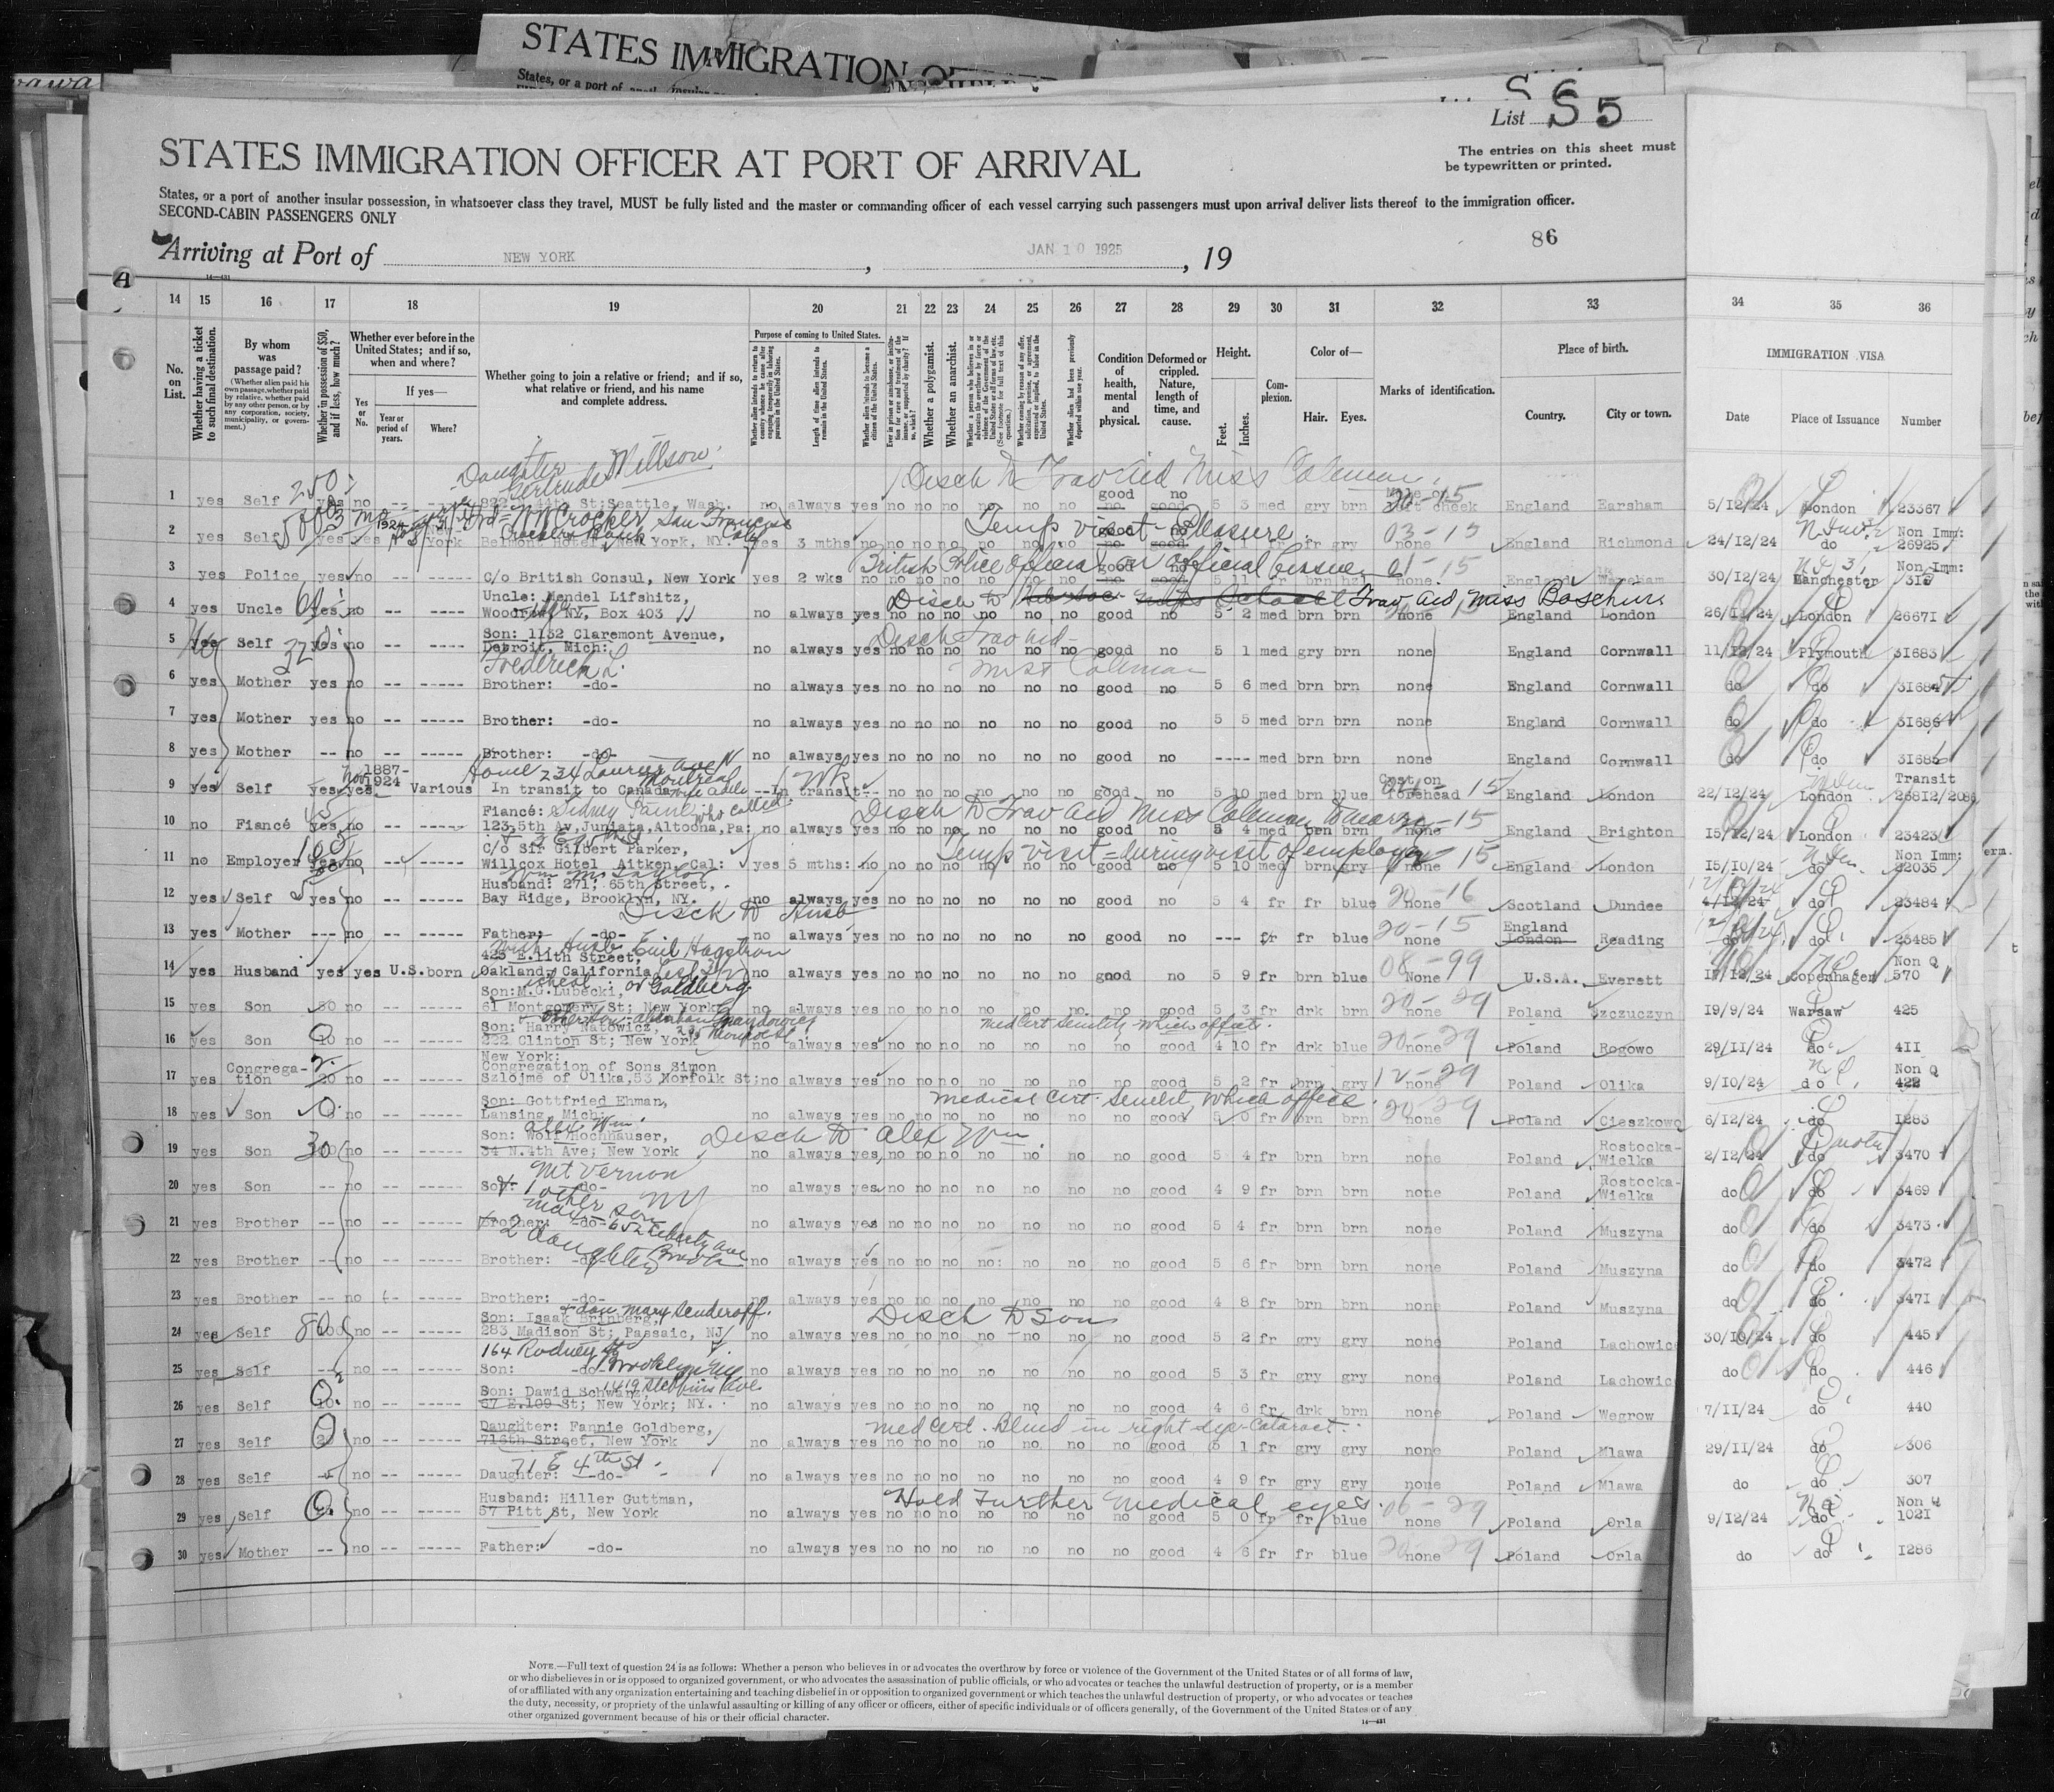 STATES IMMIGRATION
States, or a port of
S 6
List S 5
STATES IMMIGRATION OFFICER AT PORT OF ARRIVAL
The entries on this sheet must
be typewritten or printed.
States, or a port of another insular possession, in whatsoever class they travel, MUST be fully listed and the master or commanding officer of each vessel carrying such passengers must upon arrival deliver lists thereof to the immigration officer.
SECOND-CABIN PASSENGERS ONLY
86
Arriving at Port of NEW YORK , JAN 10 1925 , 19
14 15 16 17 18 19 20 21 22 23 24 25 26 27 28 29 30 31 32 33 34 35 36
No. on List.
Whether having a ticket to such final destination.
By whom was passage paid?
(Whether alien paid his own passage, whether paid by relative, whether paid by any other person, or by any corporation, society, municipality, or government.)
Whether in possession of $50, and if less, how much?
Whether ever before in the United States; and if so, when and where?
Yes or No.
If yes—
Year or period of years.
Where?
Whether going to join a relative or friend; and if so, what relative or friend, and his name and complete address.
Purpose of coming to United States.
Length of time alien intends to remain in the United States.
Whether alien intends to become a citizen of the United States.
Whether a polygamist.
Whether an anarchist.
Condition of health, mental and physical.
Deformed or crippled. Nature, length of time, and cause.
Height.
Feet. Inches.
Complexion.
Color of—
Hair. Eyes.
Marks of identification.
Place of birth.
Country. City or town.
IMMIGRATION VISA
Date Place of Issuance Number
Daughter Gertrude Millson Disch to Trav Aid Miss Coleman
1 yes Self 250 yes no -- ---- 822 N 44th St; Seattle, Wash. no always yes no no no no no no good no 5 3 med gry brn 20-15 England Earsham 5/12/24 London 23367
2 yes Self 500 yes yes 1924 York W W Crocker, San Francisco Crocker Bank Belmont Hotel, New York, NY. yes 3 mths no no no no no no no Temp visit - Pleasure fr gry 03-15 none England Richmond 24/12/24 do Non Imm: 26925
3 yes Police yes no -- ----- C/o British Consul, New York yes 2 wks no British Police Official on official business 5 11 fr brn hzl none 15 England Wareham 30/12/24 Manchester Non Imm: 316
Uncle: Mendel Lifshitz, Disch to Trav Aid Miss
4 yes Uncle yes no Woodridge NY, Box 403 no always yes no no no no no no good no 5 2 med brn brn none England London 26/11/24 London 26671
Son: 1132 Claremont Avenue, Disch Trav Aid-
5 yes Self yes no Detroit, Mich: no always yes no no no no no no good no 5 1 med gry brn none England Cornwall 11/12/24 Plymouth 31683
Frederick L. Miss Coleman
6 yes Mother yes no -- ----- Brother: -do- no always yes no no no no no no good no 5 6 med brn brn none England Cornwall do do 31684
7 yes Mother yes no -- ----- Brother: -do- no always yes no no no no no no good no 5 5 med brn brn none England Cornwall do do 31685
8 yes Mother -- no -- ----- Brother: -do- no always yes no no no no no no good no ---- med brn brn none England Cornwall do do 31686
Home 234 Laurier Ave W Montreal
9 yes Self yes yes 1887-1924 Various In transit to Canada --In transit-- no no no no no no good no 5 10 med brn blue forehead 15 England London 22/12/24 London Transit 26812/2086
Fiancé: Sidney Paine who called Disch to Trav Aid Miss Coleman to marry
10 no Fiancé yes no -- ----- 123,5th Av,Juniata,Altoona,Pa: no always yes no no no no no no good no 5 4 med brn brn none 15 England Brighton 15/12/24 London 23423
C/o Sir Gilbert Parker, Temp visit = during visit of employer
11 no Employer yes no -- ----- Willcox Hotel Aitken, Cal: yes 5 mths: no no no no no no no good no 5 10 med brn gry none 15 England London 15/10/24 do Non Imm: 22035
Wm M. Taylor
Husband: 271, 65th Street,
12 yes Self yes no -- ----- Bay Ridge, Brooklyn, NY. no always yes no no no no no no good no 5 4 fr fr blue 20-16 none Scotland Dundee 4/12/24 do 23484
Disch to Husb
13 yes Mother --- no -- ----- Father: -do- no always yes no no no no no no good no --- fr fr blue 20-15 none England London Reading do do 23485
Husb Emil Hagstrom
425 E.11th Street,
14 yes Husband yes yes U.S.born Oakland, California no always yes no no no no no no good no 5 9 fr brn blue 08-99 None U.S.A. Everett 17/12/24 Copenhagen Non Q 570
Son:M.G.Lubecki, or Goldberg
15 yes Son 50 no -- ----- 61 Montgomery St; New York no always yes no no no no no no good no 5 3 fr drk brn 20-29 none Poland Szczuczyn 19/9/24 Warsaw 425
Son: Harry Natowicz, Med Cert Senility which affects.
16 yes Son 10 no -- ----- 222 Clinton St; New York no always yes no no no no no no no good 4 10 fr drk blue 20-29 none Poland Rogowo 29/11/24 do 411
New York:
Congregation of Sons Simon
17 yes Congregation 20 no -- ----- Szlojme of Olika,53 Norfolk St; no always yes no no no no no no no good 5 2 fr brn gry 12-29 none Poland Olika 9/10/24 do Non Q 422
Son: Gottfried Ehman, Medical Cert. Senility which affects.
18 yes Son no -- ----- Lansing, Mich: no always yes no no no no no no no good 5 0 fr brn brn 20-29 none Poland Cieszkowo 6/12/24 do 1283
Alex Wm.
Son: Wolf Hochhauser, Disch to Alex Wm.
19 yes Son 300 no -- ----- 34 N.4th Ave; New York no always yes no no no no no no no good 5 4 fr brn brn none Poland Rostocka-Wielka 2/12/24 do 3470
Mt Vernon NY
20 yes Son -- no -- ----- Son: -do- no always yes no no no no no no no good 4 9 fr brn brn none Poland Rostocka-Wielka do do 3469
& 1 other son Max
21 yes Brother -- no -- ----- Brother: -do- 652 Liberty Ave no always yes no no no no no no no good 5 4 fr brn brn none Poland Muszyna do do 3473
2 daughters
22 yes Brother -- no -- ----- Brother: -do- no always yes no no no no: no no no good 5 6 fr brn brn none Poland Muszyna do do 3472
23 yes Brother -- no -- ----- Brother: -do- no always yes no no no no no no no good 4 8 fr brn brn none Poland Muszyna do do 3471
+ dau Mary Senderoff.
Son: Isaak Brinberg, Disch to Son
24 yes Self 800 no -- ----- 283 Madison St; Passaic, NJ no always yes no no no no no no no good 5 2 fr gry gry none Poland Lachowic 30/10/24 do 445
164 Rodney St Brooklyn NY
25 yes Self -- no -- ----- Son: -do- no always yes no no no no no no no good 5 3 fr gry gry none Poland Lachowic do do 446
1419 Stebbins Ave
Son: Dawid Schwarz,
26 yes Self 10 no -- ----- 67 E.109 St; New York; NY. no always yes no no no no no no no good 4 6 fr drk brn none Poland Wegrow 7/11/24 do 440
Daughter: Fannie Goldberg, Med Cert. Blind in right eye-Cataract.
27 yes Self no -- ----- 716th Street, New York no always yes no no no no no no no good 5 1 fr gry gry none Poland Mlawa 29/11/24 do 306
71 E 4th St.
28 yes Self no -- ----- Daughter: -do- no always yes no no no no no no no good 4 9 fr gry gry none Poland Mlawa do do 307
Husband: Hiller Guttman, Hold Further Medical eyes.
29 yes Self no -- ----- 57 Pitt St, New York no always yes no no no no no no no good 5 0 fr fr blue 06-29 none Poland Orla 9/12/24 do Non Q 1021
30 yes Mother -- no -- ----- Father: -do- no always yes no no no no no no no good 4 6 fr fr blue 20-29 none Poland Orla do do 1286
NOTE.—Full text of question 24 is as follows: Whether a person who believes in or advocates the overthrow by force or violence of the Government of the United States or of all forms of law,
or who disbelieves in or is opposed to organized government, or who advocates the assassination of public officials, or who advocates or teaches the unlawful destruction of property, or is a member
of or affiliated with any organization entertaining and teaching disbelief in or opposition to organized government or which teaches the unlawful destruction of property, or who advocates or teaches
the duty, necessity, or propriety of the unlawful assaulting or killing of any officer or officers, either of specific individuals or of officers generally, of the Government of the United States or of any
other organized government because of his or their official character.
14—431